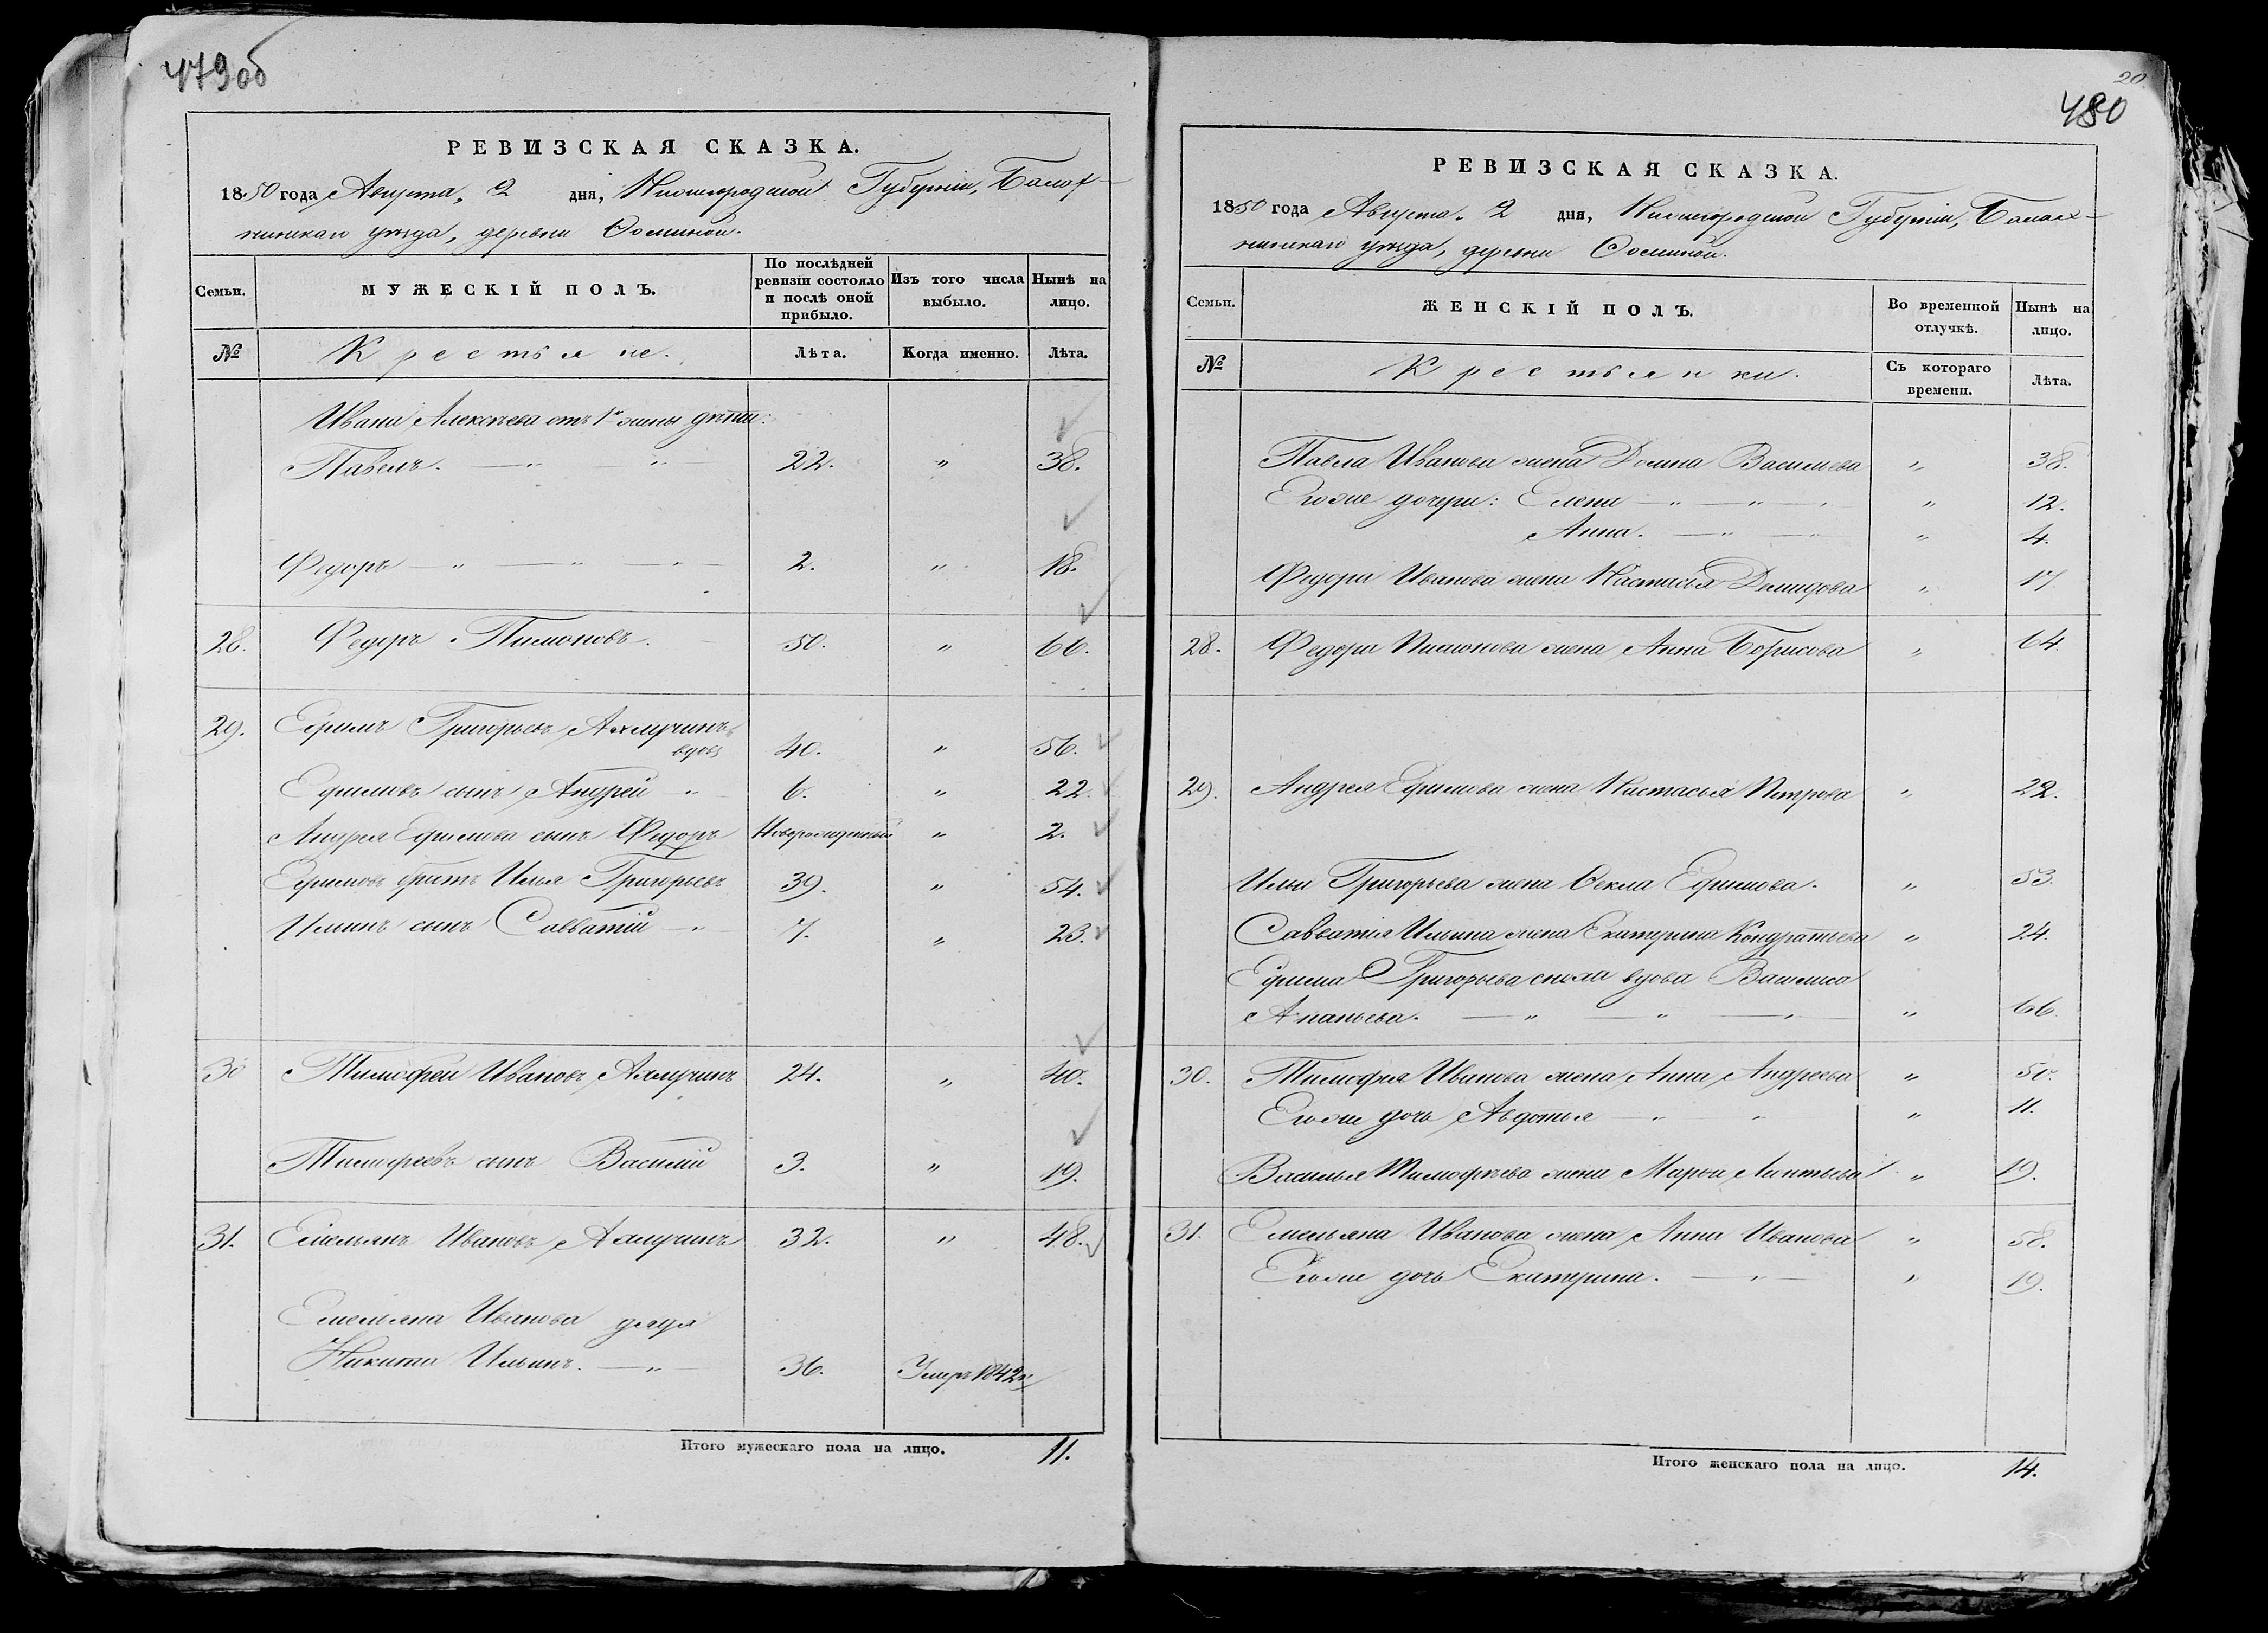 479об
РЕВИЗСКАЯ СКАЗКА.
1850 года Августа 2 дня, Нижегородской Губерніи, Балах-
нинскаго уѣзда, деревни Ѳоминой.
Семьи.
МУЖЕСКІЙ ПОЛЪ.
По послѣдней ревизіи состояло и послѣ оной прибыло.
Изъ того числа выбыло.
Нынѣ на лицо.
№
Крестьяне.
Лѣта.
Когда именно.
Лѣта.
Ивана Алексѣева отъ 1й жены дѣти:
Павелъ. — " — " 22. " 38.
Федоръ — " — " — " — 2. " 18.
28. Федоръ Пимоновъ. 50. " 66.
29. Ефимъ Григорьевъ
вдовъ 40. " 56.
Ефимовъ сынъ Андрей " 6. " 22.
Андрея Ефимова сынъ Федоръ Новорожденный " 2.
Ефимовъ братъ Илья Григорьевъ 39. " 54.
Ильинъ сынъ Савватій — " 7. " 23.
30 Тимофей Ивановъ 24. " 40.
Тимофеевъ сынъ Василій 3. " 19.
31. Емельянъ Ивановъ 32. " 48.
Емельяна Иванова дядя
Никита Ильинъ. — " — 36. Умеръ 1842
Итого мужескаго пола на лицо. 11.
20
480
РЕВИЗСКАЯ СКАЗКА.
1850 года Августа 2 дня, Нижегородской Губерніи, Балах-
нинскаго уѣзда, деревни Ѳоминой.
Семьи.
ЖЕНСКІЙ ПОЛЪ.
Во временной отлучкѣ.
Нынѣ на лицо.
№
Крестьянки.
Съ котораго времени.
Лѣта.
Павла Иванова жена Домна Васильева " 38.
Егоже дочери: Елена — " — " — " 12.
Анна. — " — " 4.
Федора Иванова жена Настасья Демидова " 17
28. Федора Пимонова жена Анна Борисова " 64.
29. Андрея Ефимова жена Настасья Петрова " 22.
Ильи Григорьева жена Ѳекла Ефимова. " 53.
Савватія Ильина жена Екатерина Кондратьева " 24.
Ефима Григорьева сноха вдова Василиса
Ананьева. — " — " — " — " 66.
30. Тимофея Иванова жена Анна Андреева " 50.
Егоже дочь Авдотья — " " " 11.
Василья Тимофѣева жена Марья " 19.
31. Емельяна Иванова жена Анна Иванова " 50.
Егоже дочь Екатерина. — " — " 19.
Итого женскаго пола на лицо. 14.